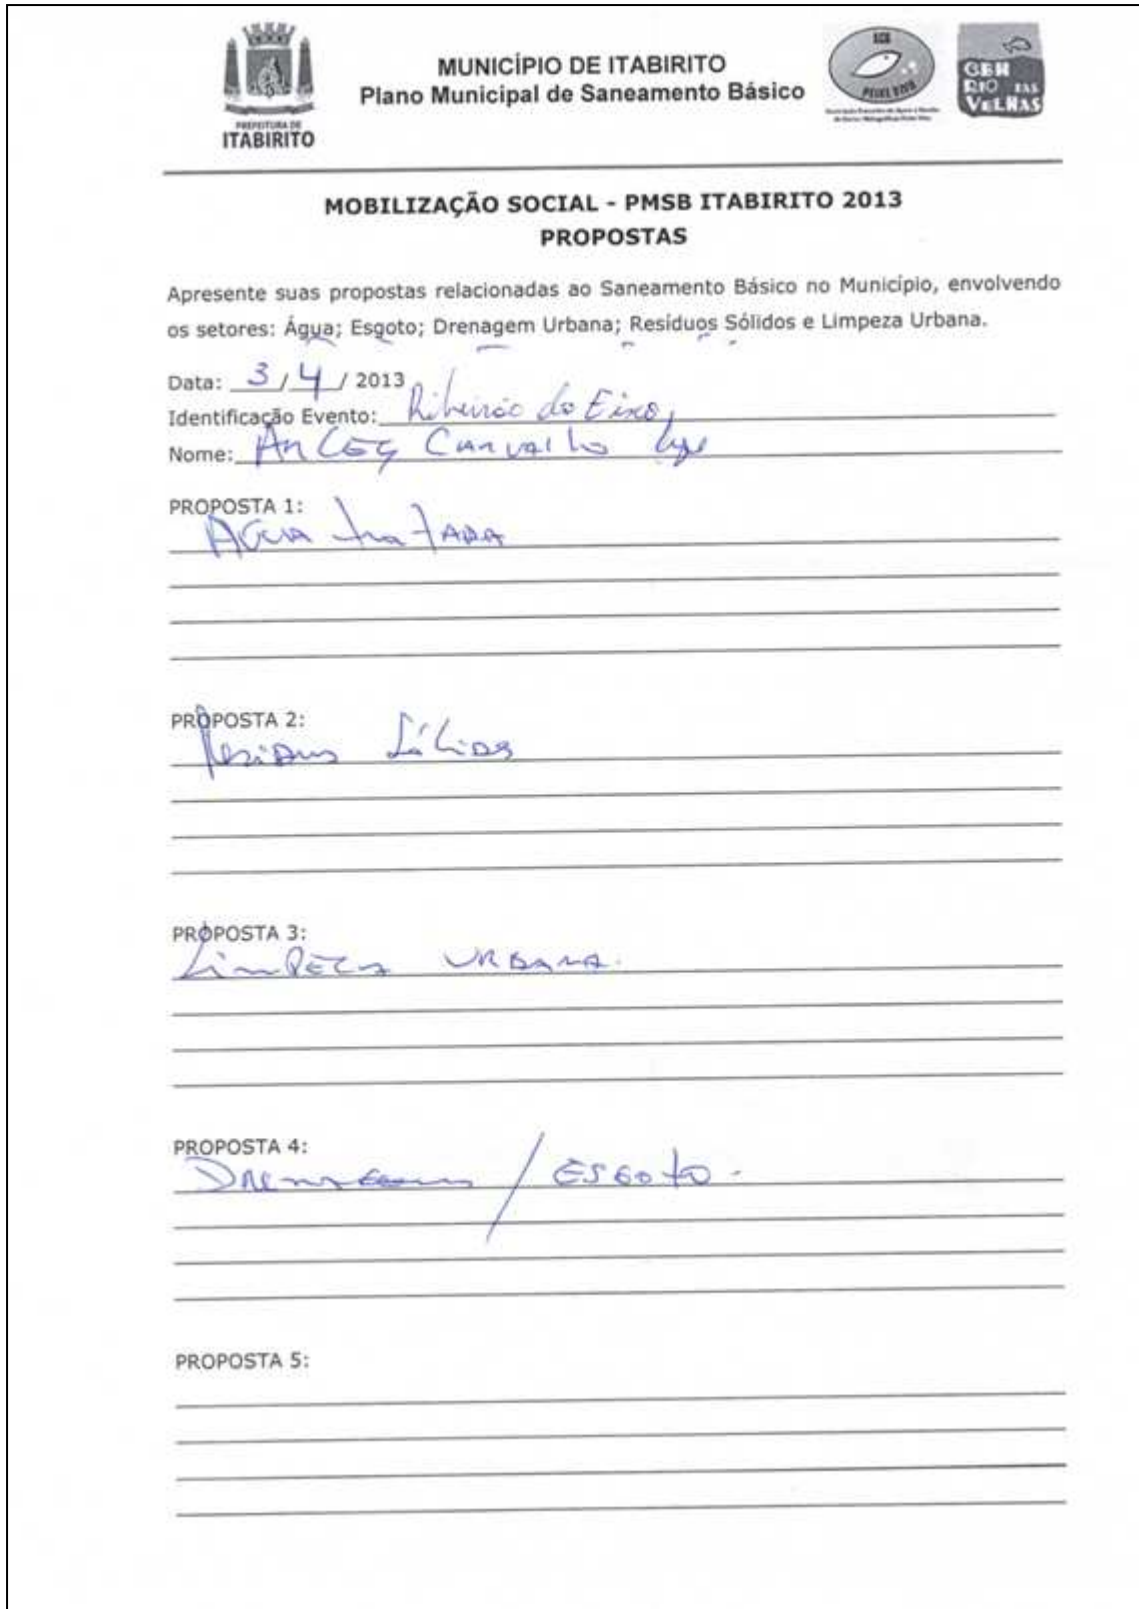 PREFEITURA DE
ITABIRITO
MUNICÍPIO DE ITABIRITO
Plano Municipal de Saneamento Básico
PEIXE VIVO
CBH
RIO DAS
VELHAS
MOBILIZAÇÃO SOCIAL - PMSB ITABIRITO 2013
PROPOSTAS
Apresente suas propostas relacionadas ao Saneamento Básico no Município, envolvendo
os setores: Água; Esgoto; Drenagem Urbana; Resíduos Sólidos e Limpeza Urbana.
Data: 3 / 4 / 2013
Identificação Evento: Ribeirão do Eixo
Nome: Carvalho
PROPOSTA 1:
AGUA tratADA
PROPOSTA 2:
Resíduos Sólidos
PROPOSTA 3:
LimPEZA URBANA.
PROPOSTA 4:
Drenagem / ESGOtO.
PROPOSTA 5: